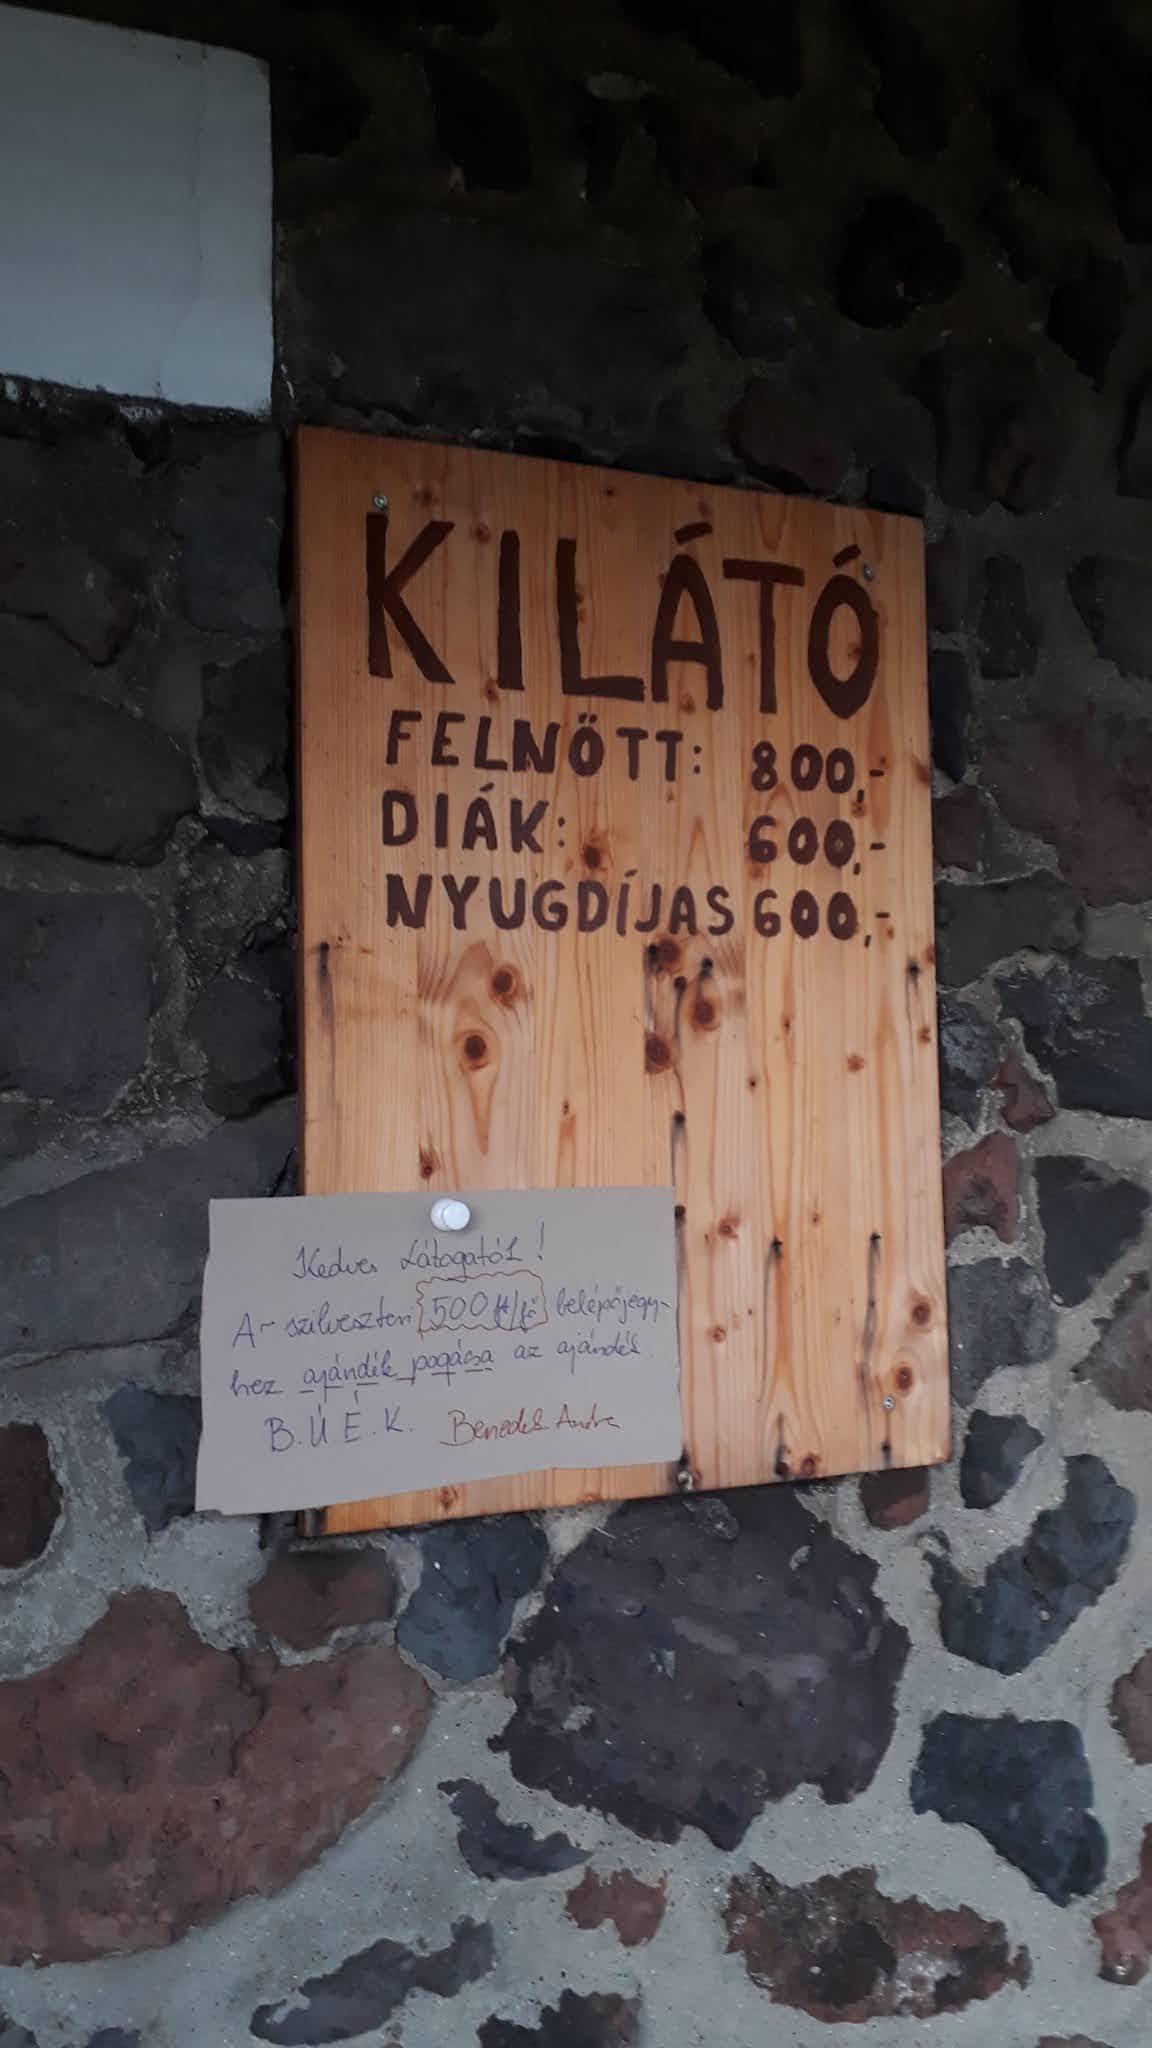 KILÁTÓ
FELNŐTT: 800,-
DIÁK: 600,-
NYUGDÍJAS 600,-
Kedves Látogatók!
Az szilveszteri 500 ft/fő belépőjegy-
hez ajándék pogácsa az ajándék.
B.Ú.É.K. Benedek Andre